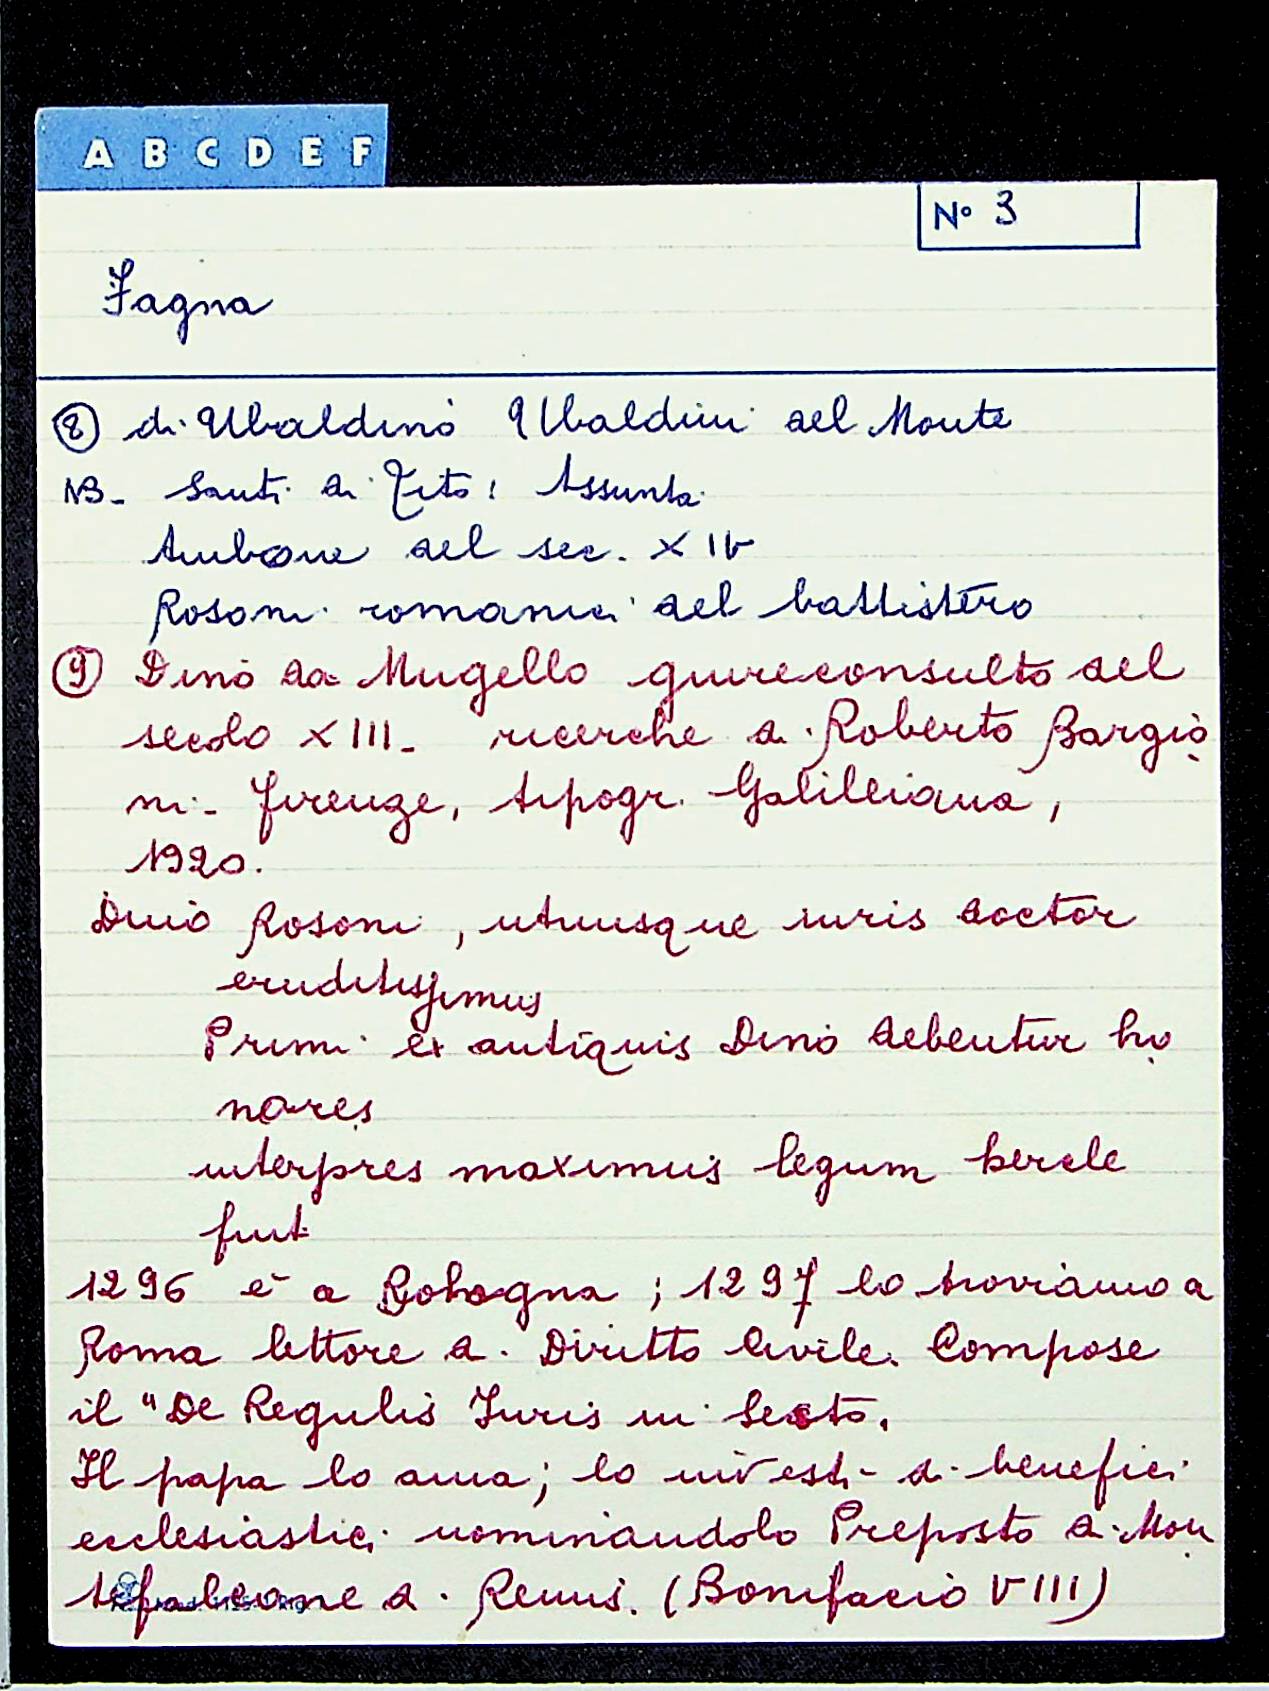 A B C D E F
N° 3
Fagna
⑧ di Ubaldino Ubaldini del Monte
NB- Santi di Tito: Assunta
Ambone del sec. XIV
Rosoni romanici del battistero
⑨ Dino da Mugello giureconsulto del
secolo XIII- ricerche di Roberto Bargio
ni- Firenze, tipogr. Galileiana,
1920.
Dino Rosoni, utriusque iuris doctor
eruditissimus
Primi ex antiquis Dino debentur ho
nores
interpres maximus legum hercle
fuit
1296 è a Bologna; 1297 lo troviamo a
Roma lettore di Diritto Civile. Compose
il "De Regulis Iuris in Sexto.
Il papa lo ama; lo investì di benefici
ecclesiastici nominandolo Preposto di Mon
tefalcone a. Remis. (Bonifacio VIII)